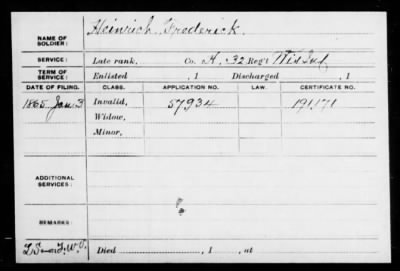 NAME OF SOLDIER: Heinrich, Frederick.
SERVICE: Late rank, Co. A, 32 Reg't Wis Inf
TERM OF SERVICE: Enlisted , 1 Discharged , 1
DATE OF FILING. CLASS. APPLICATION NO. LAW. CERTIFICATE NO.
1865 Jan 3 Invalid, 57934 191171
Widow,
Minor,
ADDITIONAL SERVICES:
REMARKS:
Died , 1 , at